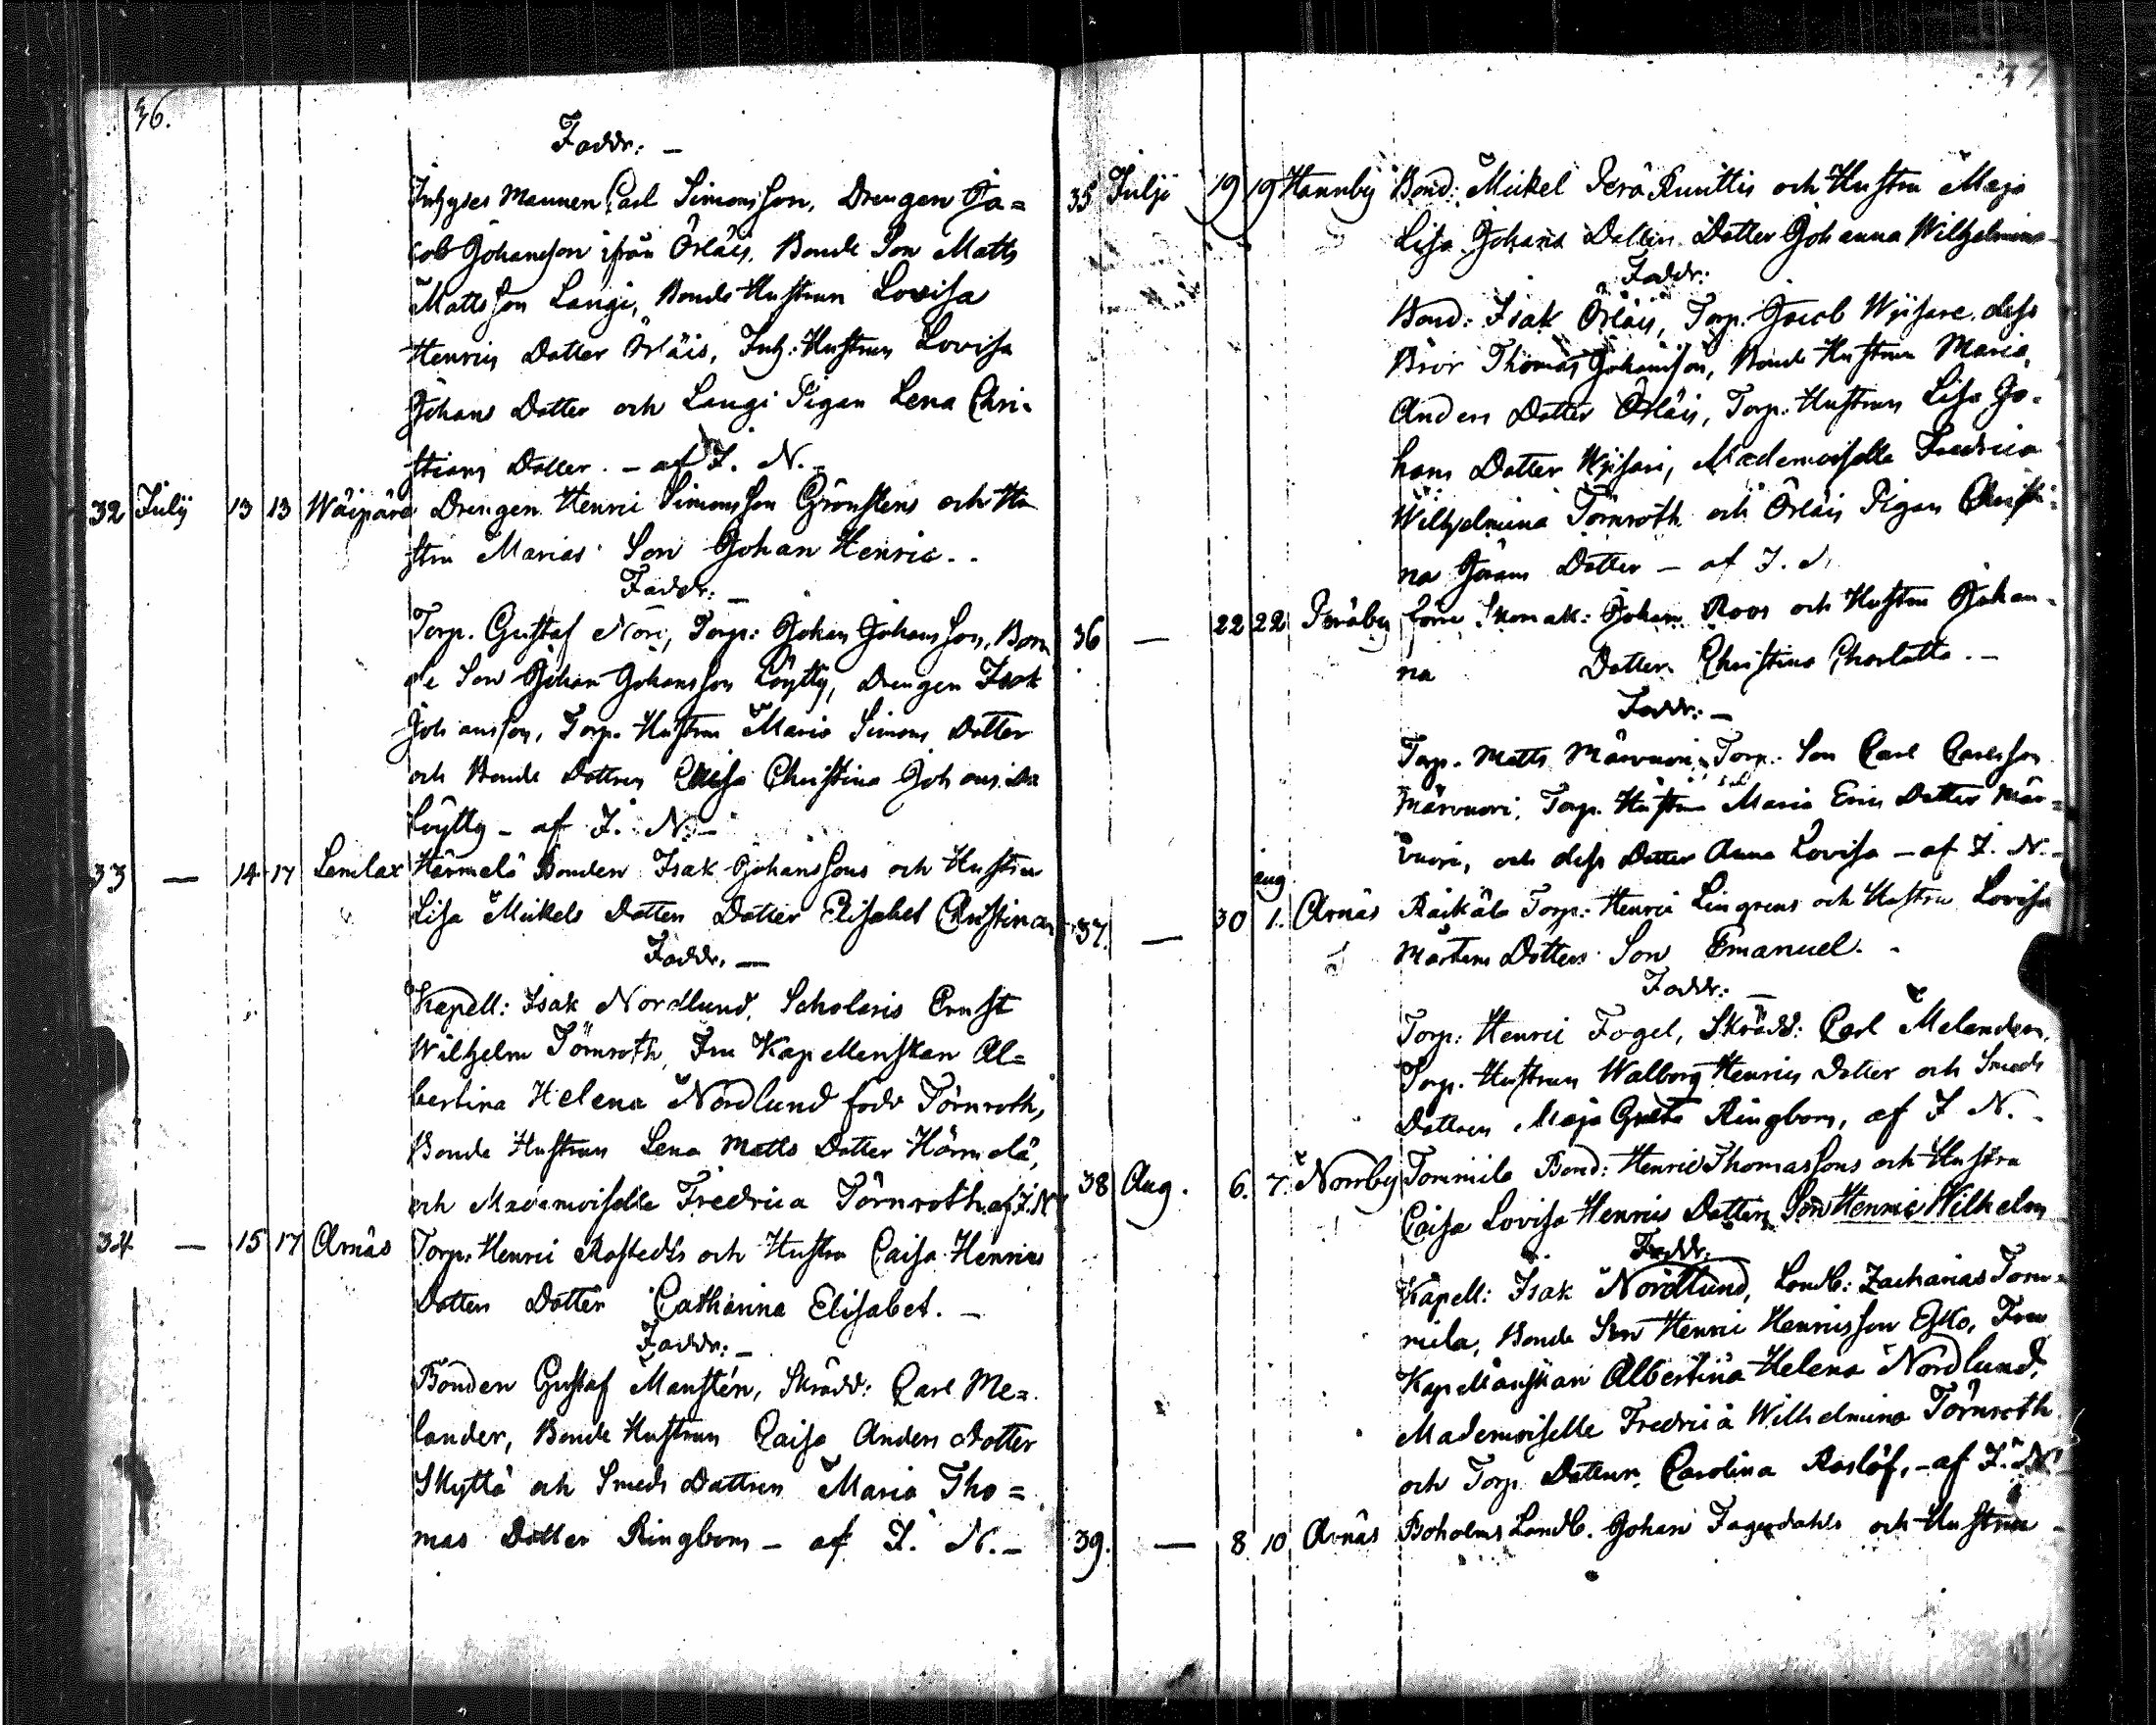 36.
Faddr: —
Inhyses Mannen Carl Simonsson, Drengen Ja=
cob Johansson ifrån Örläis, Bonde Son Matts
Mattsson Laugi, Bonde Hustrun Lovisa
Henrics Dotter Örläis, Inh: Hustrun Lovisa
Johans Dotter och Laugi Pigan Lena Chri-
stians Dotter. — af I. N. —
32 July 13 13 Wäipärä Drengen Henric Simonsson Grönstens och Hu
stru Marias Son Johan Henric. -
Faddr: —
Torp. Gustaf Nori, Torp: Johan Johansson, Bon
de Son Johan Johansson Löytty, Drengen Isak
Johansson, Torp. Hustrun Maria Simons Dotter
och Bonde Dottren Christina Johans Do
Löytty — af I. N. —
33 — 14 17 Lemlax Härmälä Bonden Isak Johanssons och Hustru
Lisa Mickels Dotters Dotter Elisabet Christina
Faddr. —
Kapell: Isak Nordlund, Scholaris Ernst
Wilhelm Törnroth, Fru Kapellanskan Al=
bertina Helena Nordlund född Törnroth,
Bonde Hustrun Lena Matts Dotter Härmälä,
och Mademoiselle Fredrica Törnroth. af I. N
34 — 15 17 Arnäs Torp: Henric Rostedts och Hustru Caisa Henrics
Dotters Dotter Catharina Elisabet. —
Faddr: —
Bonden Gustaf Manstén, Skrädd: Carl Me=
lander, Bonde Hustrun Caisa Anders Dotter
Skyttä och Smeds Dottren Maria Tho=
mas Dotter Ringbom — af I. N. —
35 Julji 19 19 Hannby Bond: Mickel Perä Kunttis och Hustru Maja
Lisa Johans Dotters Dotter Johanna Wilhelmina
Faddr:
Bond: Isak Örläis, Torp: Jacob Wjisare, dess
Bror Thomas Johansson, Bonde Hustrun Maria
Anders Dotter Örläis, Torp. Hustrun Lisa Jo-
hans Dotter Wjisari, Mademoiselle Fredrica
Wilhelmina Törnroth och Örläis Pigan Christi
na Görans Dotter — af I. N.
36 — 22 22 Peräby förre Skomak: Johan Roos och Hustru Johan-
na Dotter Christina Charlotta. —
Faddr: —
Torp. Matts Märvuori, Torp. Son Carl Carlsson
Märvuori, Torp. Hustrun Maria Erics Dotter Mär=
vuori, och dess Dotter Anna Lovisa — af I. N. —
aug.
37. — 30 1. Arnäs Räikälä Torp: Henric Lingrens och Hustru Lovisa
Mårtens Dotters Son Emanuel. -
Faddr: —
Torp: Henric Fogel, Skrädd: Carl Melander,
Torp. Hustrun Walborg Henrics Dotter och Smeds
Dottren Maja Greta Ringbom, af I N. -
38 Aug. 6. 7. Norrby Tommila Bond: Henric Thomassons och Hustru
Caisa Lovisa Henrics Dotters Son Henric Wilhelm
Faddr:
Kapell: Isak Nordlund, Landb: Zacharias Tom=
mila, Bonde Son Henric Henricsson Esko, Fru
Kapellanskan Albertina Helena Nordlund,
Mademoiselle Fredrica Wilhelmina Törnroth
och Torp. Dottren Carolina Roslöf, — af I. N.
39. — 8 10 Arnäs Boholms Landb. Johan Fagerdahls och Hustru